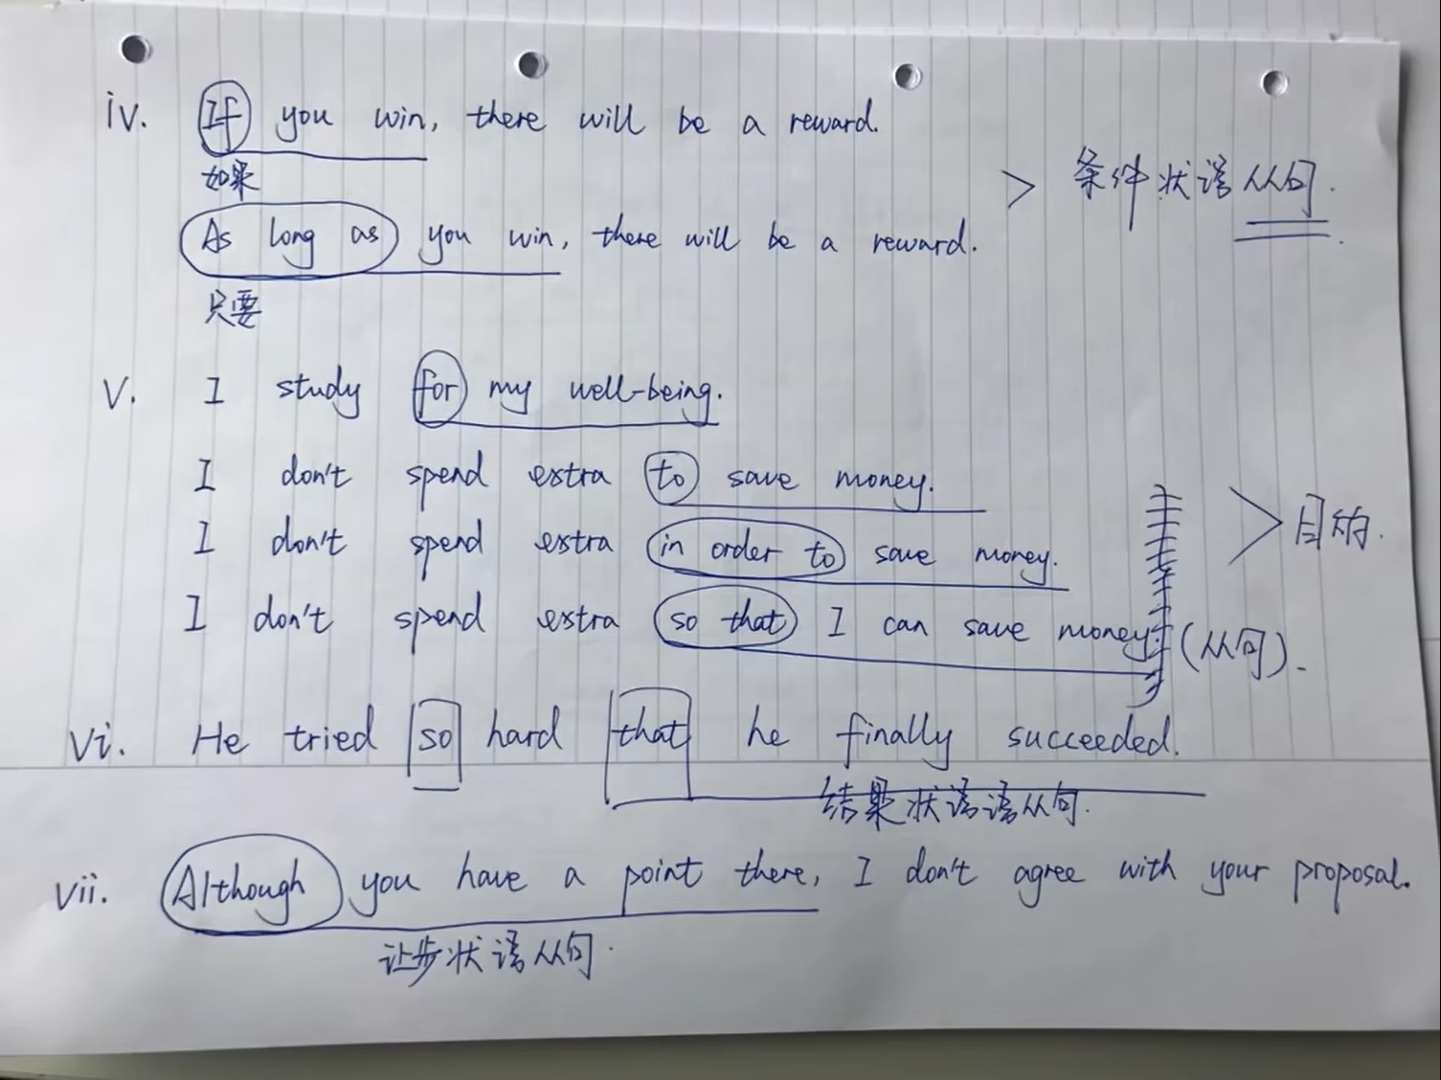 iv. If you win, there will be a reward.
如果
> 条件状语从句.
As long as you win, there will be a reward.
只要
V. I study for my well-being.
I don't spend extra to save money.
I don't spend extra in order to save money.
> 目的.
I don't spend extra so that I can save money. (从句).
vi. He tried so hard that he finally succeeded.
结果状语语从句.
vii. Although you have a point there, I don't agree with your proposal.
让步状语从句.